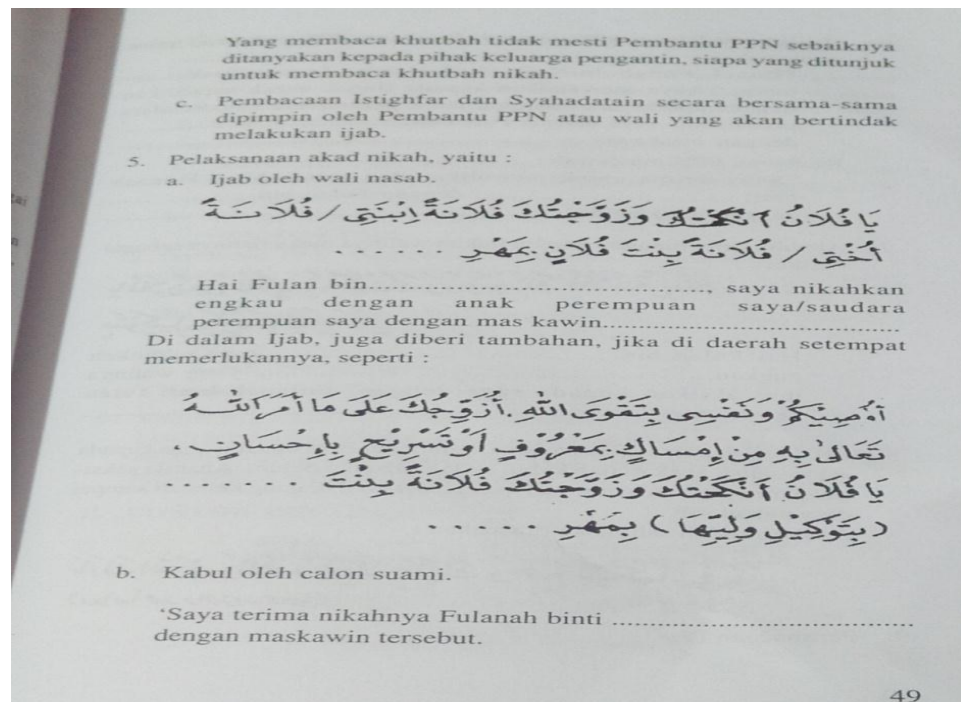 Yang membaca khutbah tidak mesti Pembantu PPN sebaiknya
ditanyakan kepada pihak keluarga pengantin, siapa yang ditunjuk
untuk membaca khutbah nikah.
c. Pembacaan Istighfar dan Syahadatain secara bersama-sama
dipimpin oleh Pembantu PPN atau wali yang akan bertindak
melakukan ijab.
5. Pelaksanaan akad nikah, yaitu :
a. Ijab oleh wali nasab.
يَا فُلَانُ اَنْكَحْتُكَ وَزَوَّجْتُكَ فُلَانَةً اِبْنَتِي / فُلَانَةً
أُخْتِي / فُلَانَةً بِنْتَ فُلَانٍ بِمَهْرِ . . . . . .
Hai Fulan bin......................................, saya nikahkan
engkau dengan anak perempuan saya/saudara
perempuan saya dengan mas kawin.................................
Di dalam Ijab, juga diberi tambahan, jika di daerah setempat
memerlukannya, seperti :
أُوْصِيْكُمْ وَنَفْسِى بِتَقْوَى اللهِ . أُزَوِّجُكَ عَلَى مَا أَمَرَ اللهُ
تَعَالَى بِهِ مِنْ إِمْسَاكٍ بِمَعْرُوْفٍ اَوْ تَسْرِيْحٍ بِإِحْسَانٍ ،
يَا فُلَانُ اَنْكَحْتُكَ وَزَوَّجْتُكَ فُلَانَةً بِنْتَ . . . . . . .
(بِتَوْكِيْلِ وَلِيِّهَا) بِمَهْرِ . . . . .
b. Kabul oleh calon suami.
‘Saya terima nikahnya Fulanah binti ....................................
dengan maskawin tersebut.
49